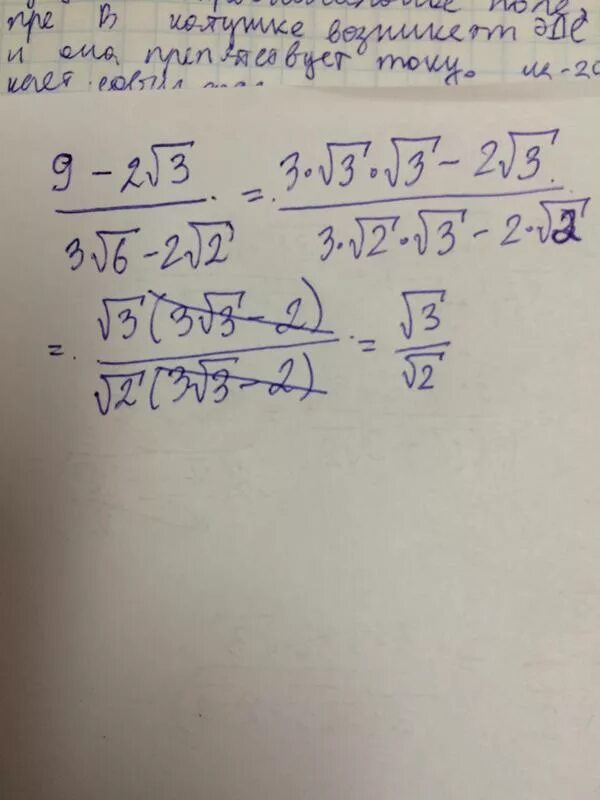 пре В катушке возникает ЭДС
и она препятствует току.
9 - 2√3 / 3√6 - 2√2 = 3·√3·√3 - 2√3 / 3·√2·√3 - 2·√2
= √3(3√3 - 2) / √2(3√3 - 2) = √3 / √2